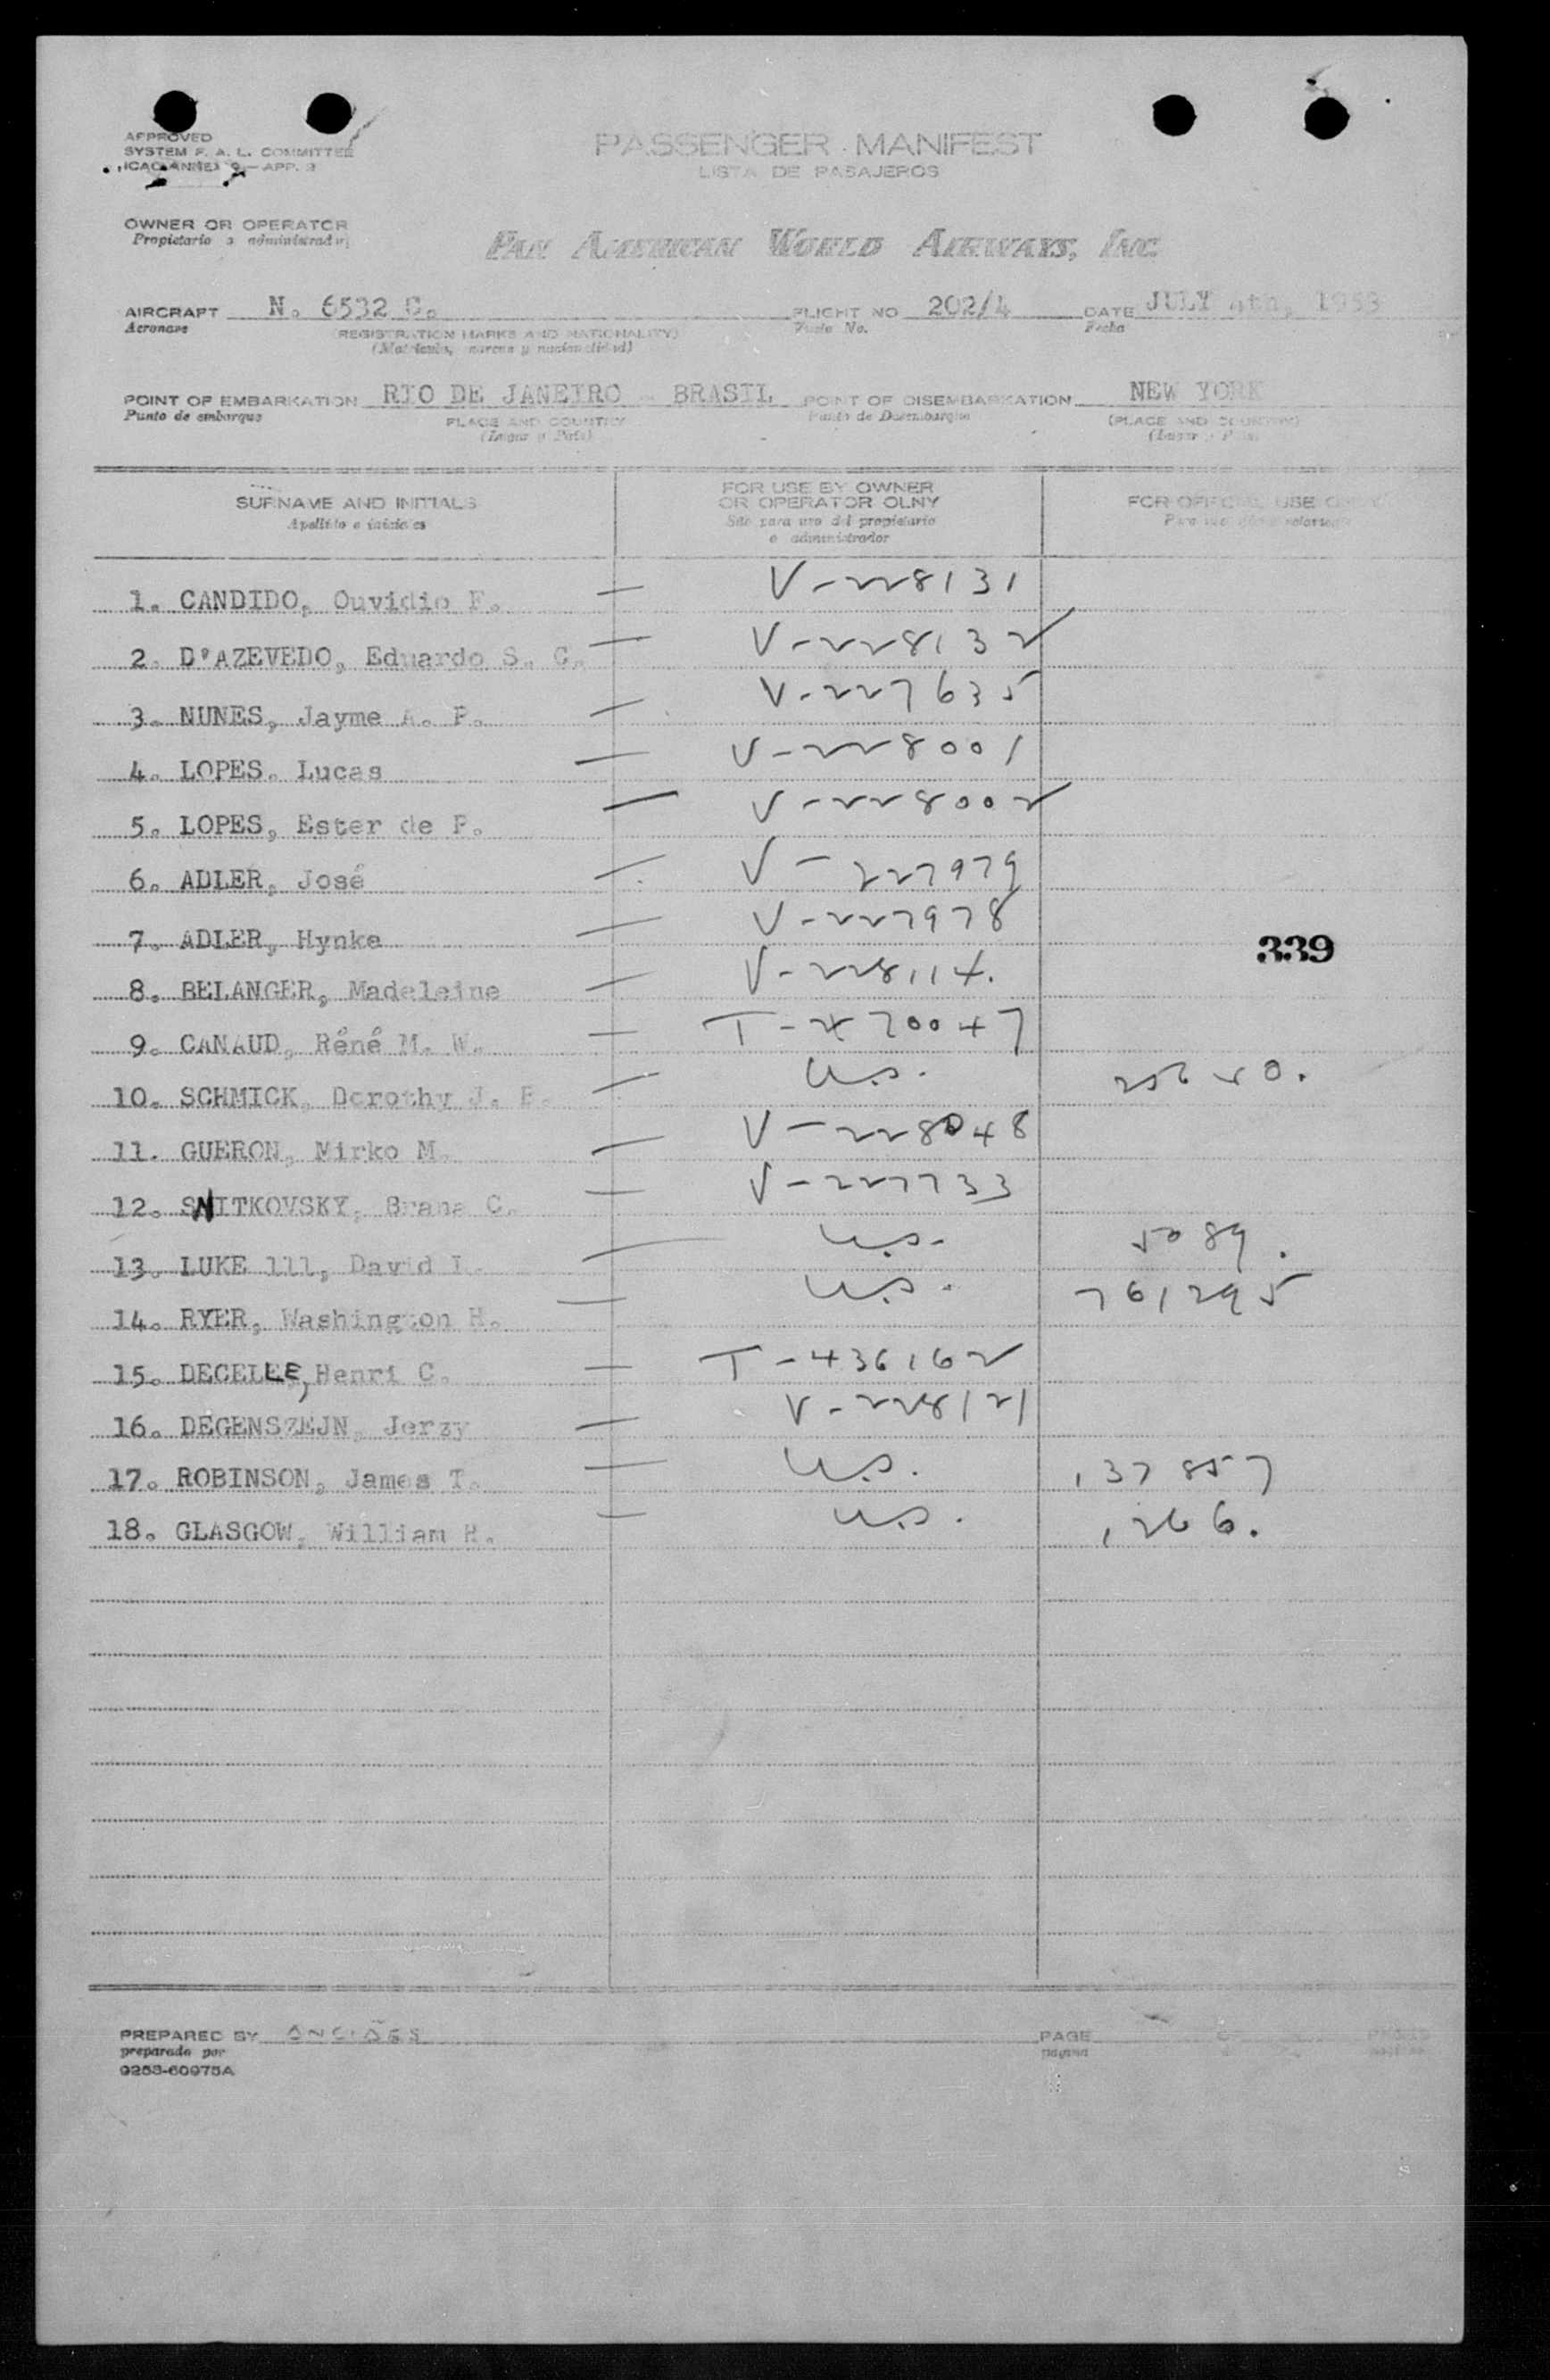 APPROVED
SYSTEM F. A. L. COMMITTEE
ICAO ANNEX 9 — APP. 3
PASSENGER MANIFEST
LISTA DE PASAJEROS
OWNER OR OPERATOR
Propietario o administrador
PAN AMERICAN WORLD AIRWAYS, INC.
AIRCRAFT N. 6532 C. FLIGHT NO 202/4 DATE JULY 4th, 1953
Aeronave (REGISTRATION MARKS AND NATIONALITY) Vuelo No. Fecha
(Matricula, marcas y nacionalidad)
POINT OF EMBARKATION RIO DE JANEIRO - BRASIL POINT OF DISEMBARKATION NEW YORK
Punto de embarque PLACE AND COUNTRY Punto de Desembarque (PLACE AND COUNTRY)
(Lugar y País) (Lugar y País)
SURNAME AND INITIALS FOR USE BY OWNER OR OPERATOR OLNY FOR OFFICIAL USE ONLY
Apellido e iniciales Sólo para uso del propietario o administrador Para uso
1. CANDIDO, Ouvidio F. — V-228131
2. D'AZEVEDO, Eduardo S. C. — V-228132
3. NUNES, Jayme A. P. — V-227635
4. LOPES. Lucas — V-228001
5. LOPES, Ester de P. — V-228002
6. ADLER, José — V-227979
7. ADLER, Hynke — V-227978
339
8. BELANGER, Madeleine — V-228114.
9. CANAUD, Réné M. W. — T-270047
10. SCHMICK, Dorothy J. — U.S.
11. GUERON, Mirko M. — V-228048
12. SNITKOVSKY, C. — V-227733
13. LUKE lll, David L. — U.S. 5089.
14. RYER, Washington H. — U.S. 761295
15. DECELLE, Henri C. — T-436162
16. DEGENSZEJN, Jerzy — V-228121
17. ROBINSON, James T. — U.S. 137857
18. GLASGOW, William H. — U.S. 1266.
PREPARED BY PAGE
preparado por página
9253-60975A